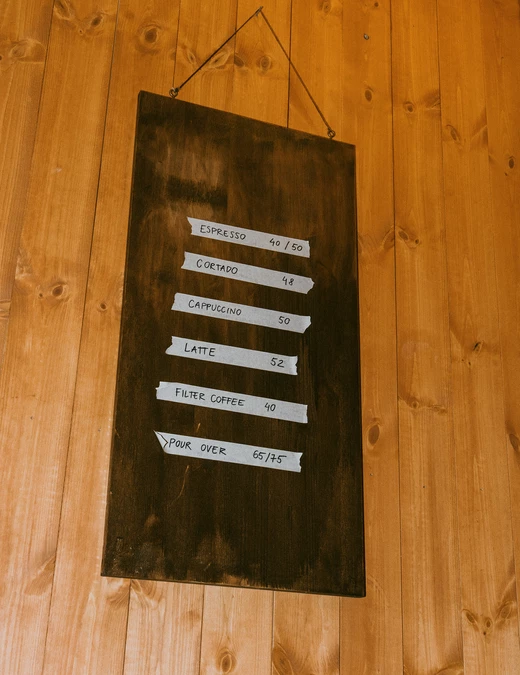 ESPRESSO 40 / 50
CORTADO 48
CAPPUCCINO 50
LATTE 52
FILTER COFFEE 40
POUR OVER 65/75